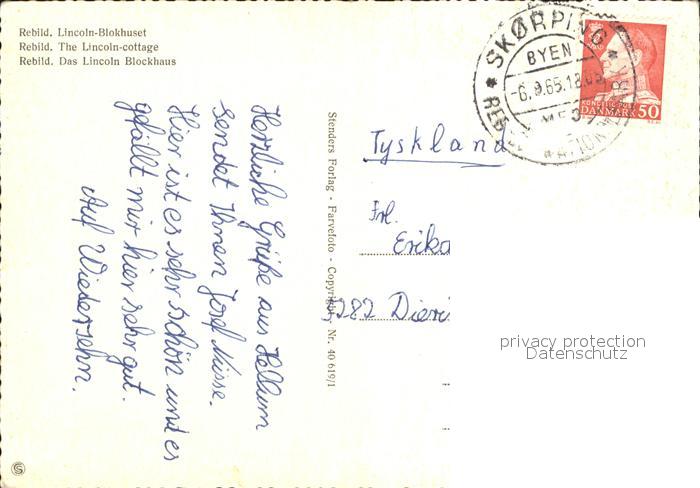 Rebild. Lincoln-Blokhuset
Rebild. The Lincoln-cottage
Rebild. Das Lincoln Blockhaus
SKØRPING
BYEN
-6.9.65.18.
MED
REB
NATION
KONGELIG
DANMARK 50
Herzliche Grüße aus Hellum
sendet Ihnen Josef Nüsse.
Hier ist es sehr schön und es
gefällt mir hier sehr gut.
Auf Wiedersehn.
Stenders Forlag - Farvefoto - Copyright Nr. 40 619/1
Tyskland
Frl.
Erika
5282 Dieri
privacy protection
Datenschutz